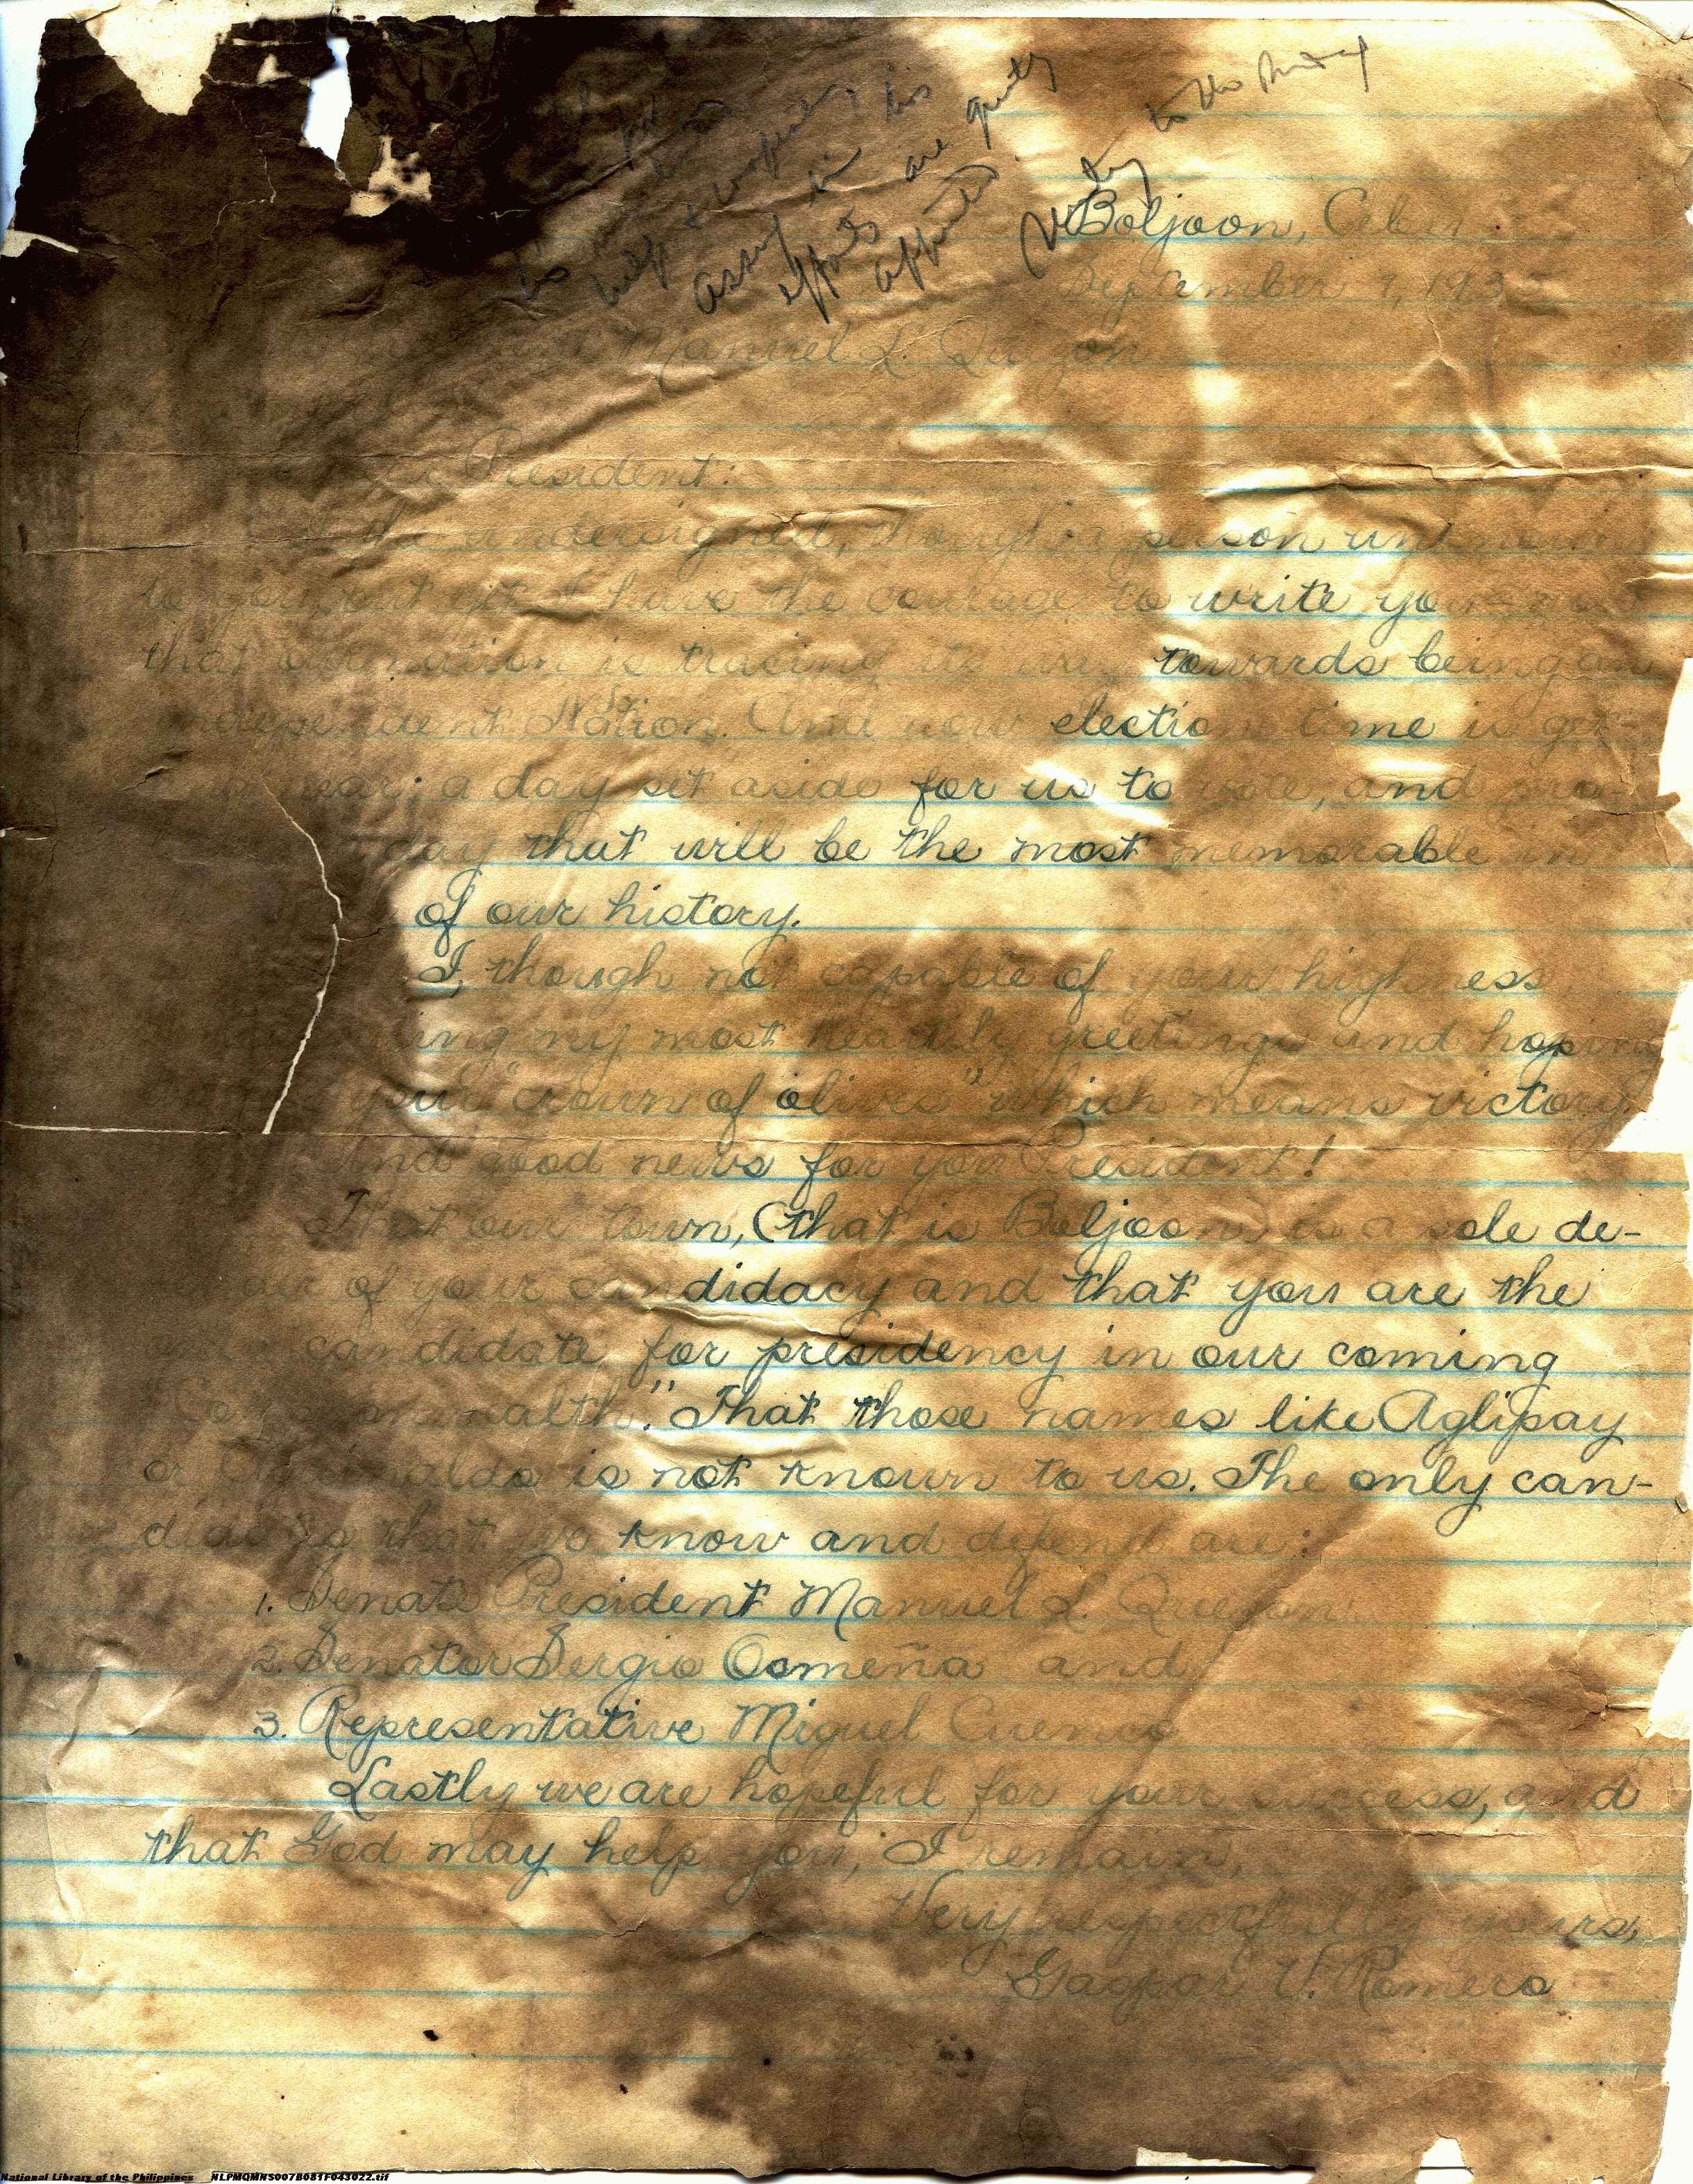 his
help &
assuring in are greatly
efforts
to the
Boljoon, Cebu
September 9, 193
Manuel L. Quezon
President:
the undersigned, though a person unknown
to you, but yet I have the courage to write you now
that our nation is tracing its way towards being an
independent Nation. And now election time is get-
near; a day set aside for us to vote, and
day that will be the most memorable in
of our history.
I, though not capable of your highness,
ing my most heartily greetings and hoping
your "crown of olives" which means victory.
And good news for you President!
That our town, (that is Boljoon) is a sole de-
of your candidacy and that you are the
candidate for presidency in our coming
"Commonwealth." That those names like Aglipay
or Aguinaldo is not known to us. The only can-
didates that we know and defend are:
1. Senate President Manuel L. Quezon
2. Senator Sergio Osmeña and
3. Representative Miguel Cuenco
Lastly we are hopeful for your success, and
that God may help you, I remain,
Very respectfully yours,
Gaspar V. Romero
National Library of the Philippines NLPMQMNS007B081F043022.tif